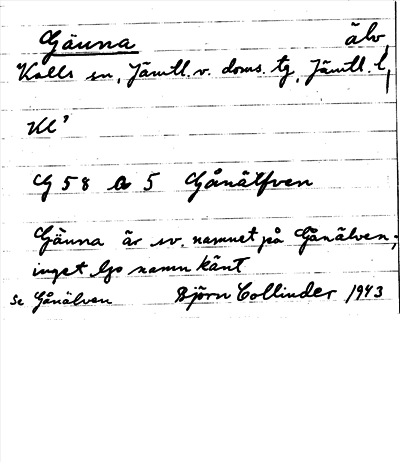 Gäuna älv
Kalls sn, Jämtl. v. doms. tg, Jämtl. l.
Kl'
G 58 Ö 5 Gånälfven
Gäuna är sv. namnet på Gånälven;
inget lp namn känt
Se Gånälven Björn Collinder 1943